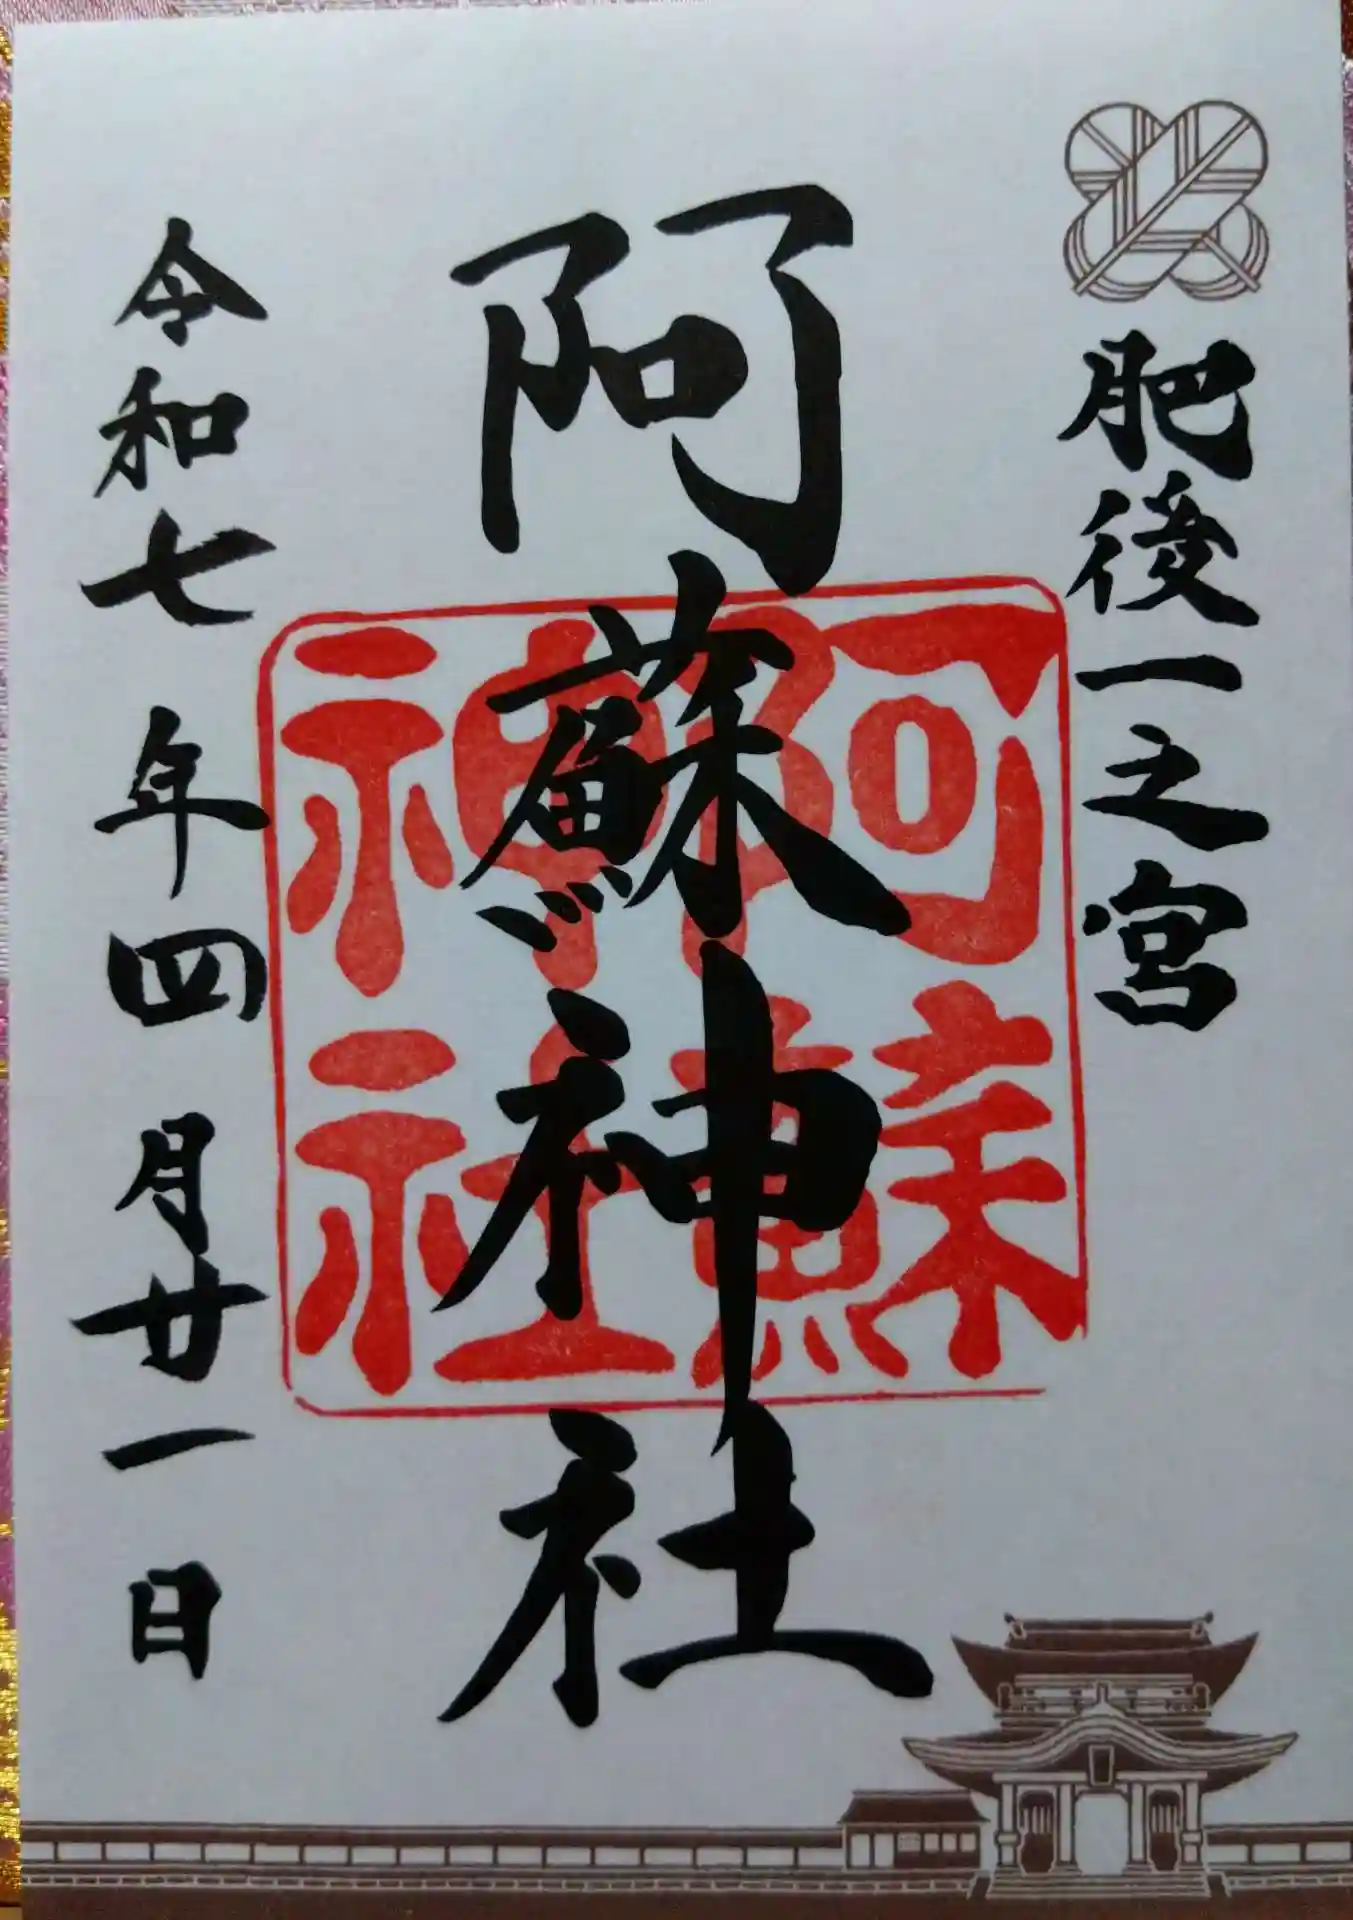 肥後一之宮
阿蘇神社
阿蘇
神社
令和七年四月廿一日